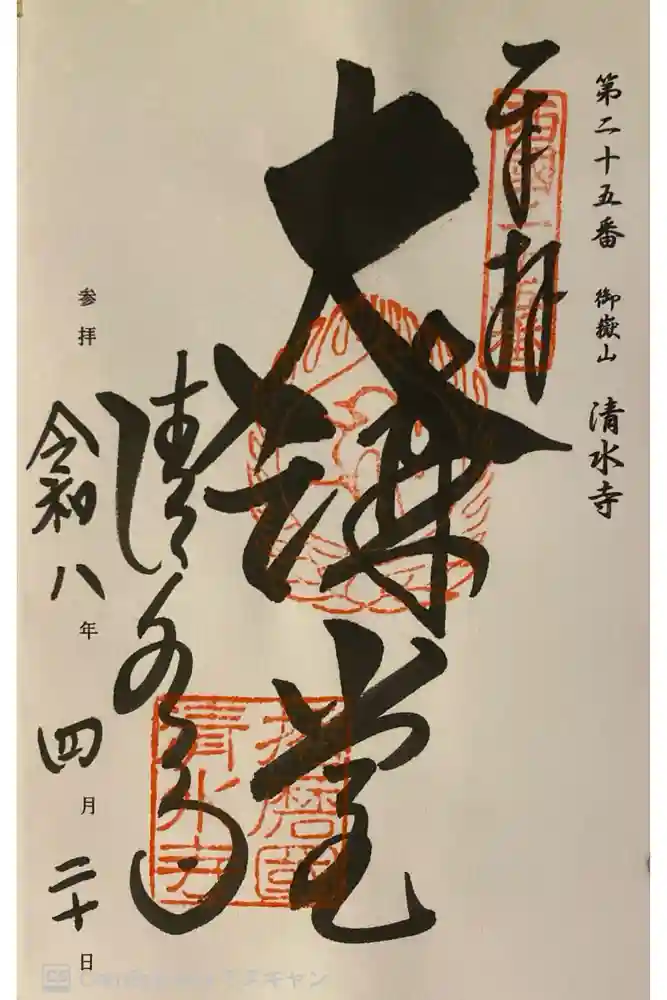 第二十五番 御嶽山 清水寺
奉拝
西國二十五番
大講堂
播磨国
清水寺
清水寺
参拝 令和八年四月二十日
CS